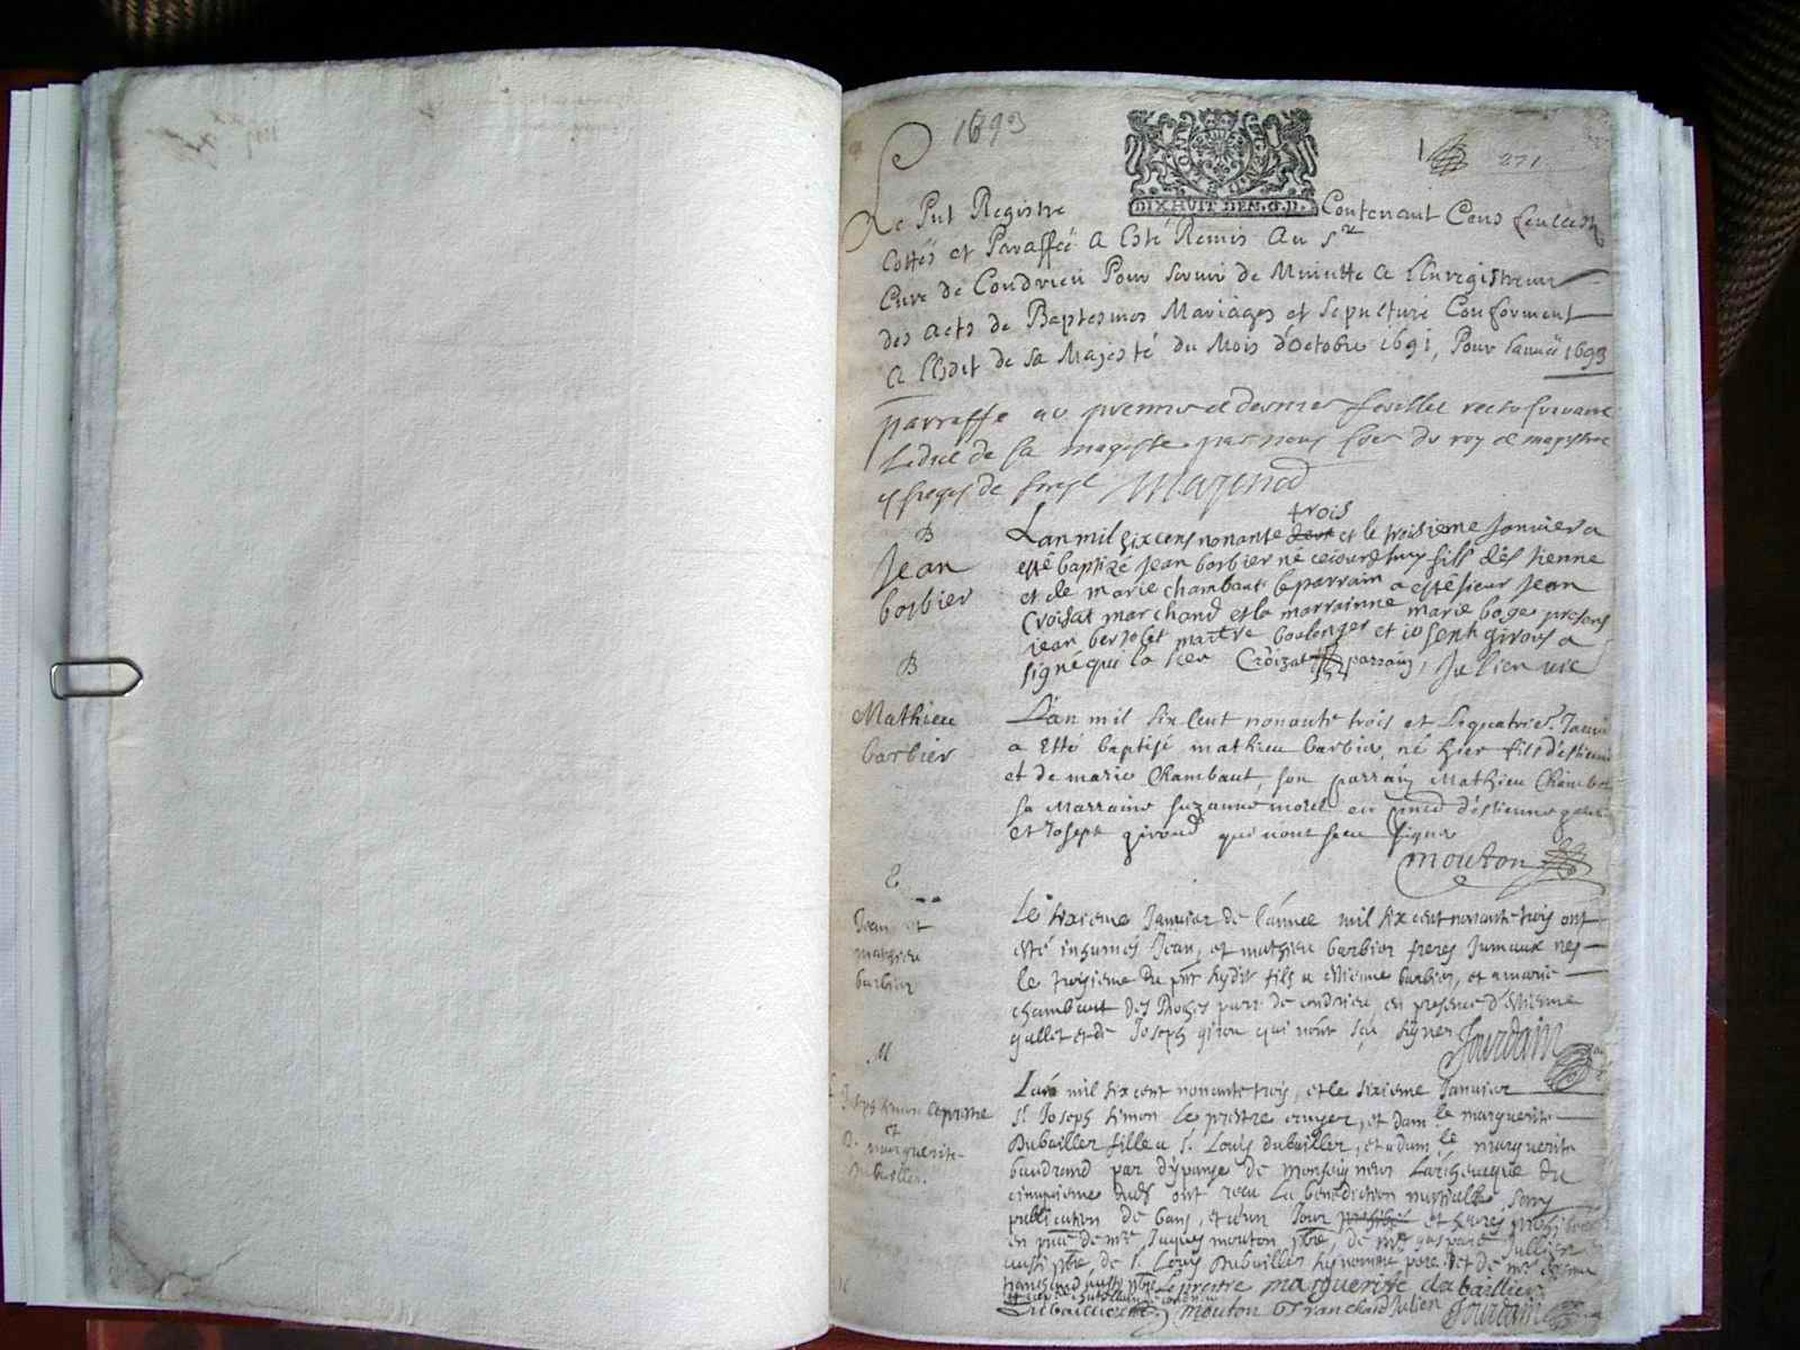 1693
271
DIXHUIT DEN. G.D.
Le Pnt Registre Contenant Cens feuillets
Cottés et Parafféé a Esté Remis Au Sr
Curé de Condrieu Pour servir de Minutte a l'Enregistrem
des Acts de Baptesmes Mariages et Sepulture Conforment
A l'Edit de Sa Majesté du Mois d'Octobre 1691, Pour l'année 1693
parraffe au premier et dernier feuillet recto suivant
Ledict de sa mageste par nous du roy
Mazenod
B
Jean
barbier
trois
Lan mil six cens nonante deux et le troisieme Janvier a
esté baptizé Jean barbier né cejourdhuy fils destienne
et de marie chambaut le parrain a esté sieur Jean
Croisat marchand et la marrainne marie boge presens
jean maitre boulenger et ioseph giroud a
signé qui la sceu Croizat parrain, Julien vic
B
Mathieu
barbier
L'an mil six cent nonante trois et le quatrie Janvi
a Etté baptisé mathieu barbier né hier fils d'estienne
et de marie Chambaut, son parrain Mathieu Chambaut
sa Marraine suzanne morel en d'estienne
et Joseph giroud qui n'ont sceu signer
mouton
Jean et
mathieu
barbier
Le sixieme Janvier de l'année mil six cent nonante trois ont
esté inhumés Jean, et mathieu barbier freres Jumeaux nés
le troisieme du pnt fils a estienne barbier, et a marie
chambaut des Roches parr. de condrieu, en presence d'estienne
gallet et de Joseph girou qui n'ont sçu signer Jourdain
M
Joseph simon leprestre
et
D. marguerite
Dubaillier.
Lan mil six cent nonante trois, et le sixieme Janvier
Sr Joseph simon le prestre ecuyer, et dam le marguerite
Dubaillier fille a Sr Louis dubaillier, et a dam le marguerite
baudrand par dispanse de monseigneur Larcheveque du
cinquieme dud ont receu la benediction nuptialle sans
publication de bans, et dun Jour prohibé et heures prohibées
en pnce de mre Jaques mouton ptre, de mre gaspard Jullien
aussi ptre, de Sr Louis Dubaillier pere et de mre
aussi ptre Leprestre marguerite dubaillier
Dubaillier mouton Franchard Julien Jourdain